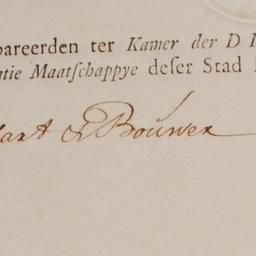 pareerden ter Kamer der D I
ntie Maatſchappye deſer Stad
art & Bouwer